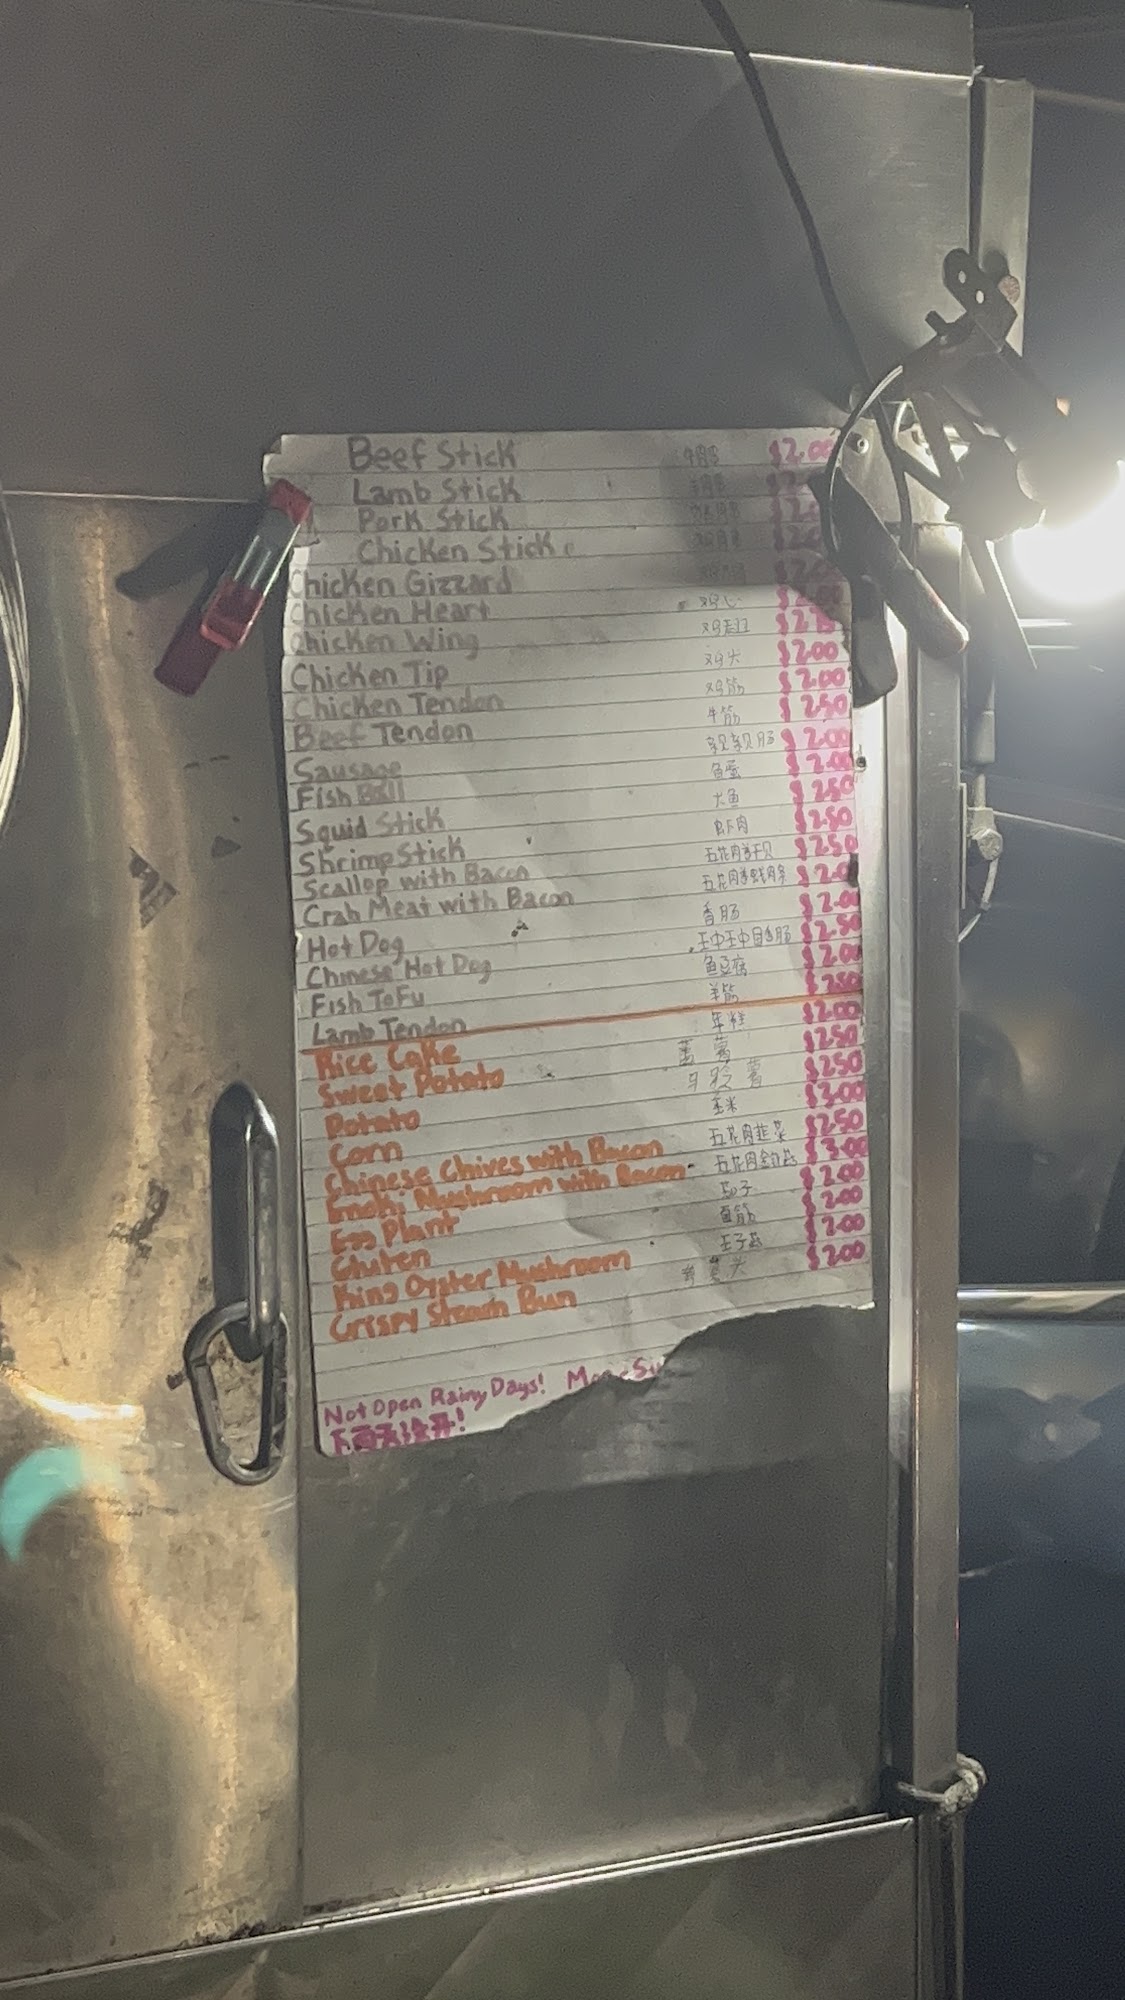 Beef Stick 牛肉串 $2.00
Lamb Stick 羊肉串
Pork Stick
Chicken Stick
Chicken Gizzard
Chicken Heart 鸡心
Chicken Wing 鸡翅
Chicken Tip 鸡尖 $2.00
Chicken Tendon 鸡筋 $2.00
Beef Tendon 牛筋 $2.50
Sausage 亲亲肠 $2.00
Fish Ball 鱼蛋 $2.00
Squid Stick 大鱼 $2.50
Shrimp Stick 虾肉 $2.50
Scallop with Bacon $2.50
Crab Meat with Bacon $2.00
Hot Dog 香肠 $2.00
Chinese Hot Dog $2.50
Fish ToFu 鱼豆腐 $2.00
Lamb Tendon 羊筋 $2.50
Rice Cake 年糕 $2.00
Sweet Potato $2.50
Potato $2.50
Corn 玉米 $3.00
Chinese Chives with Bacon 五花肉韭菜 $2.50
Enoki Mushroom with Bacon 五花肉金针菇 $3.00
Egg Plant 茄子 $2.00
Gluten 面筋 $2.00
King Oyster Mushroom $2.00
Crispy Steam Bun $2.00
Not Open Rainy Days!
下雨天没开!